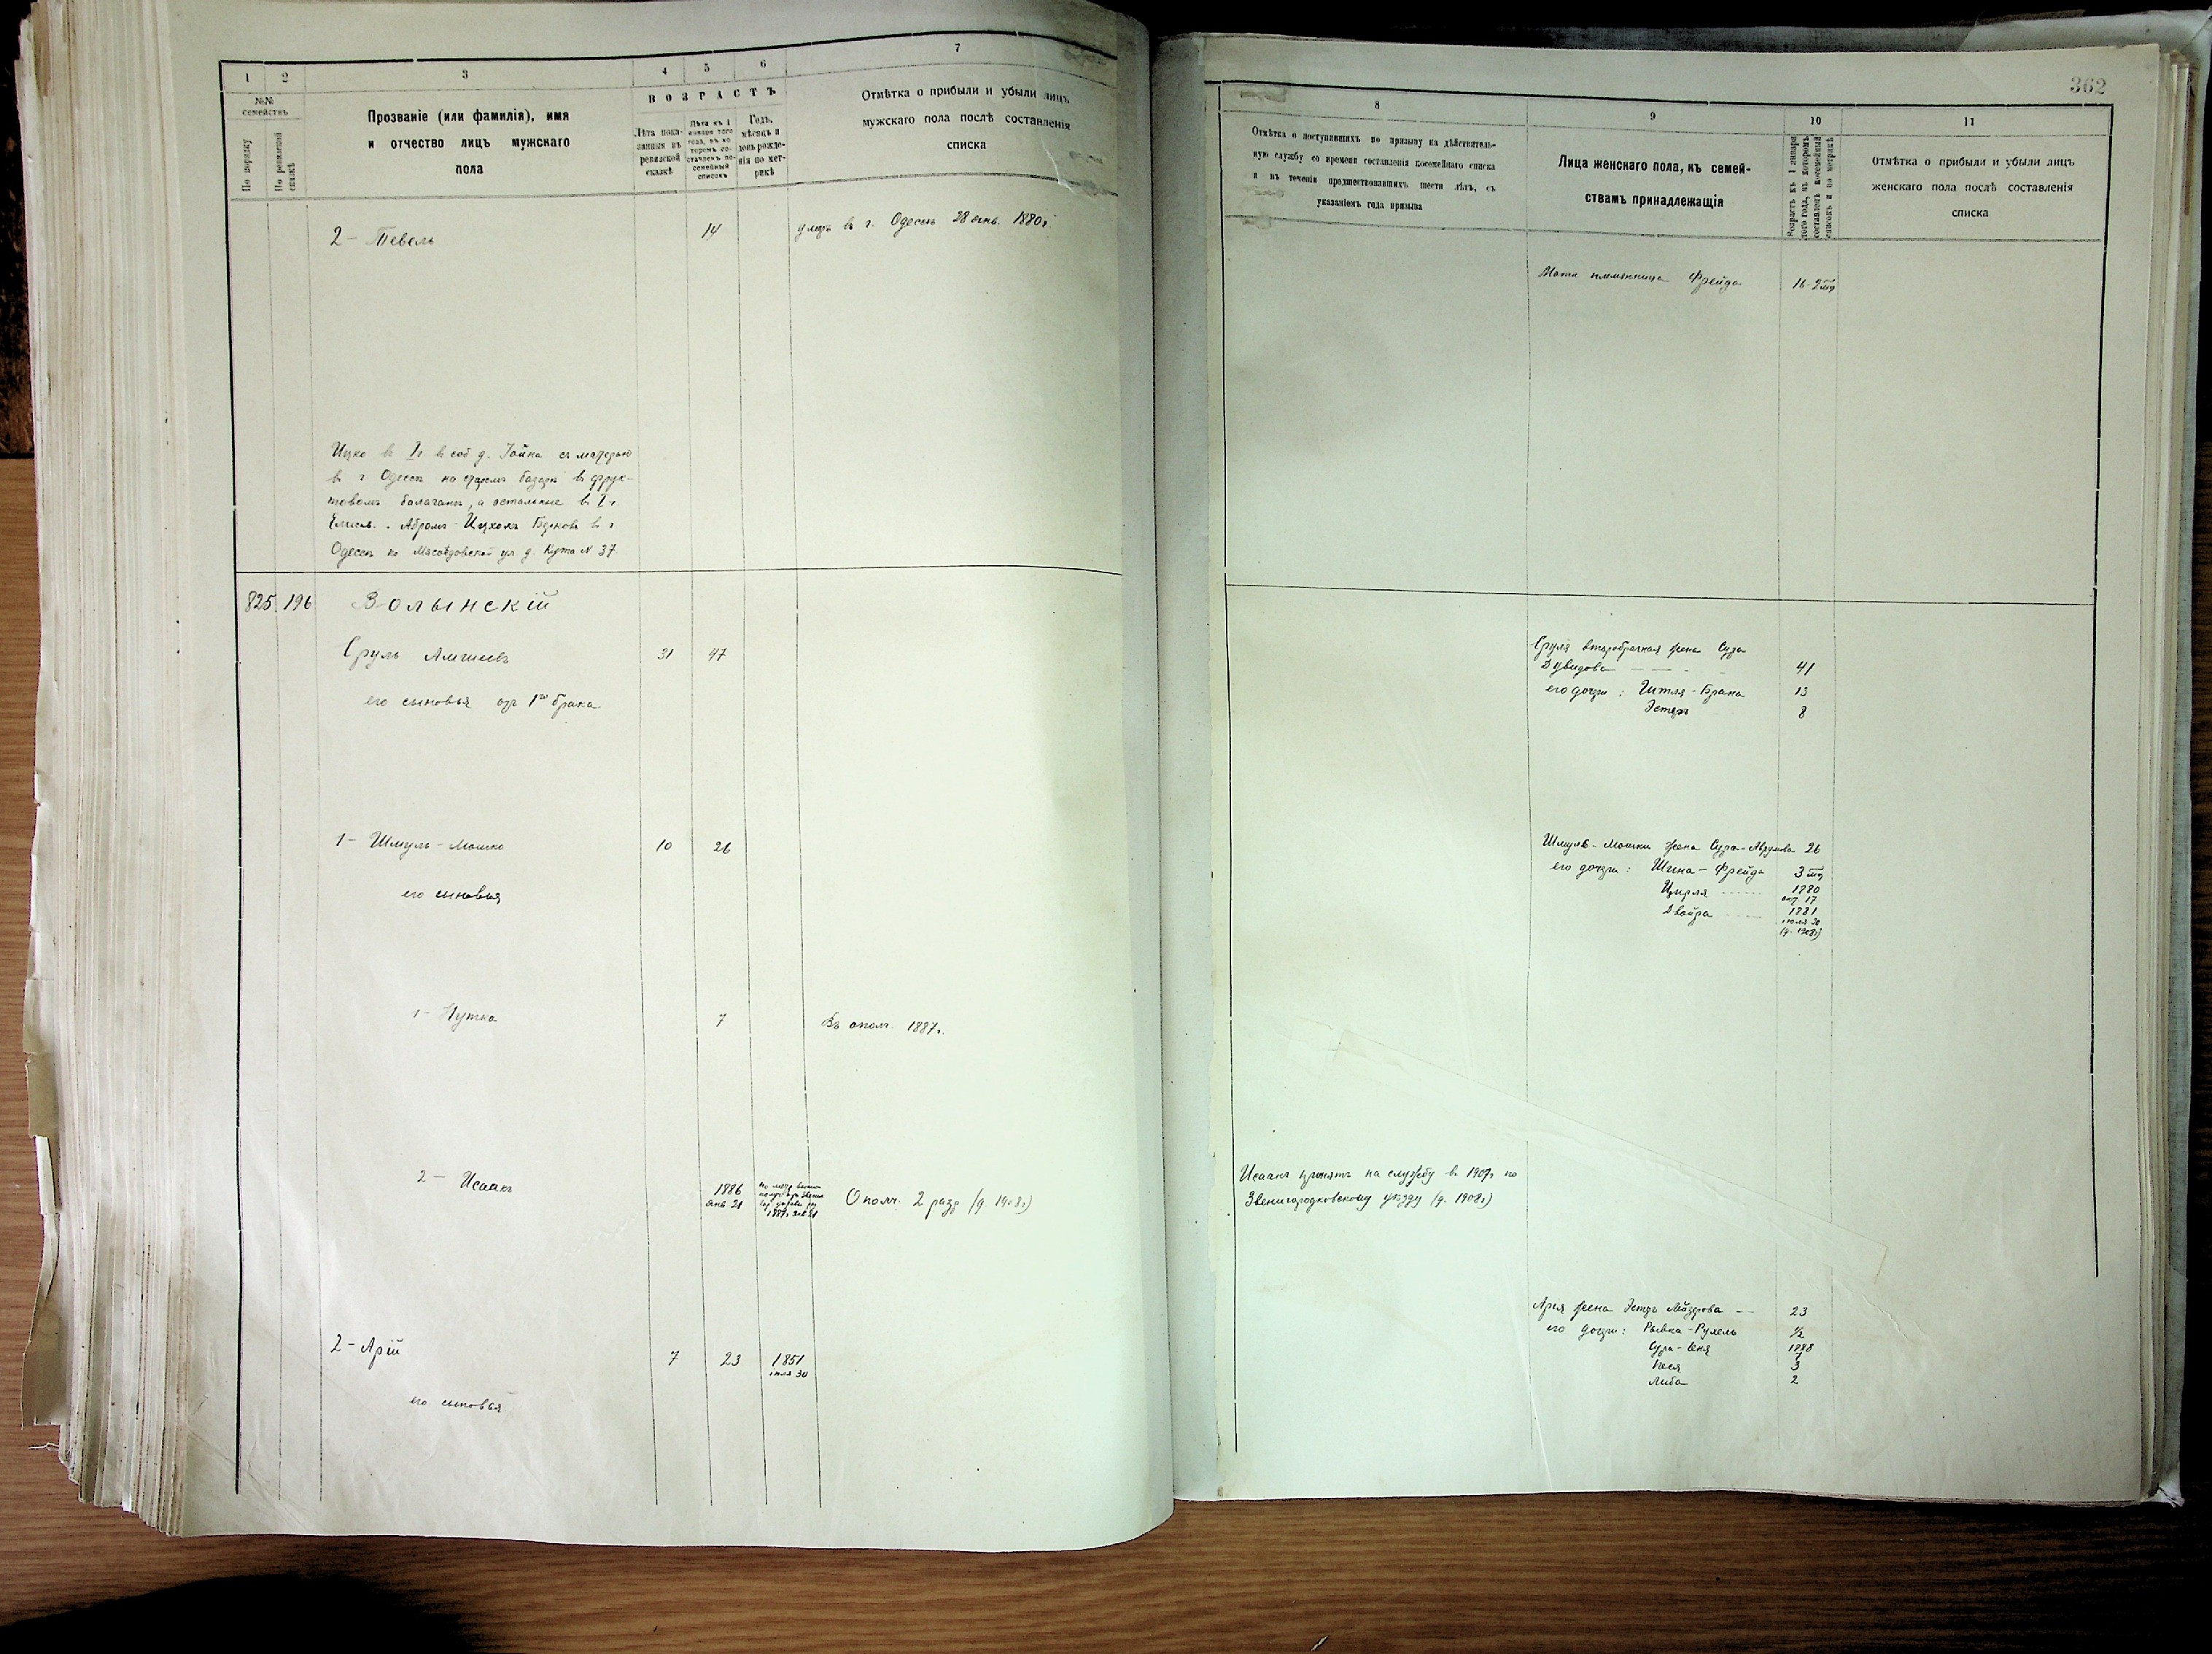 1
2
3
4
5
6
7
№№ семействъ
По порядку
По ревизской сказкѣ
Прозваніе (или фамилія), имя
и отчество лицъ мужскаго
пола
ВОЗРАСТЪ
Лѣта пока-
занныя въ
ревизской
сказкѣ
Лѣта къ 1
января того
года, въ ко-
торомъ со-
ставленъ по-
семейный
списокъ
Годъ,
мѣсяцъ и
день рожде-
нія по мет-
рикѣ
Отмѣтка о прибыли и убыли лицъ
мужскаго пола послѣ составленія
списка
2 - Тевель
14
умеръ в г. Одессѣ 28 янв. 1880 г.
Ицко в
в соб д. Іойна съ матерью
в г Одессѣ на старомъ базарѣ в фрук-
товомъ балаганѣ, а остальные в
Абрамъ-Ицхокъ
в г
Одессѣ по Мясоѣдовской ул д. Кута № 37.
825
196
Волынскій
Сруль
31
47
его сыновья отъ 1го брака
1 - Шмуль-Мошко
10
26
его сыновья
1 - Нутка
7
Въ ополч. 1887 г.
2 - Исаакъ
1886
янв 21
Ополч. 2 разр (д 1908 г)
2 - Арій
7
23
1851
іюля 30
его сыновья
362
8
9
10
11
Отмѣтка о поступившихъ по призыву на дѣйствитель-
ную службу со времени составленія посемейнаго списка
и въ теченіи предшествовавшихъ шести лѣтъ, съ
указаніемъ года призыва
Лица женскаго пола, къ семей-
ствамъ принадлежащія
Возрастъ къ 1 января
того года, въ которомъ
составленъ посемейный
списокъ и по метрикѣ
Отмѣтка о прибыли и убыли лицъ
женскаго пола послѣ составленія
списка
племянница Фрейда
16
Сруля второбрачная жена Сура
Дувидова
41
его дочери: Гитля-Брана
13
Эстеръ
8
Шмуля-Мошки жена Сура-Абрумова 26
его дочери: Шина-Фрейда
3
Цирля
1880
17
Двойра
1881
іюля 30
(д. 1908 г)
Исаакъ принятъ на службу в 1907 г по
Звенигородковскому уѣзду (д. 1908 г)
Арія жена Эстеръ Лейзерова
23
его дочери: Рывка-Рухель
½
1888
7
Песя
3
Либа
2